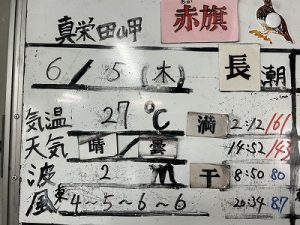 真栄田岬
赤旗
6/5(木)
長潮
気温 27℃
天気 晴/曇
波 2m
風 東4~5~6~6
満 2:12 161
14:52 143
干 8:50 80
20:34 87